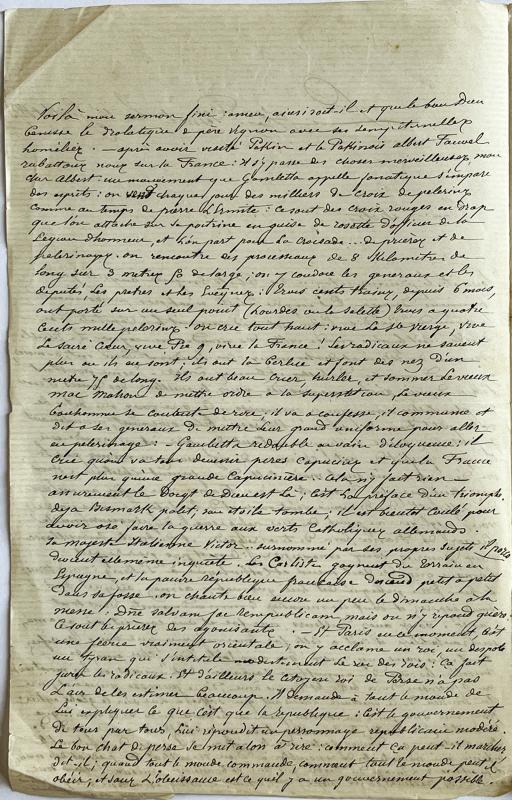 Voilà mon sermon fini: amen, ainsi soit-il et que le bon Dieu
benisse le drolatique père Vignon avec ses sempiternelles
homiliez. — après avoir visité Pekin et le Pekinois albert Fauvel
rabattons nous sur la France: il s'y passe des choses merveilleuses, mon
cher Albert: un mouvement que Gambetta appelle fanatique s'empare
des esprits: on vend chaque jour des milliers de croix de pelerins
comme au temps de pierre l'Ermite: ce sont des croix rouges en drap
que l'on attache sur sa poitrine en guise de rosette d'officier de la
Legion d'honneur, et l'on part pour la croisade... de prieres et de
pelerinages. on rencontre des processions de 8 Kilometres de
long sur 3 metres de large; on y coudoie les generaux et les
deputés, les pretres et les Eveques: trois cents trains, depuis 6 mois,
ont porté sur un seul point (Lourdes ou la Salette) trois a quatre
cents mille pelerins. on crie tout haut: vive la Ste Vierge, vive
le sacré Cœur, vive Pie 9, vive la France! Les radicaux ne savent
plus ou ils en sont: ils ont la berlue et font des nez d'un
metre 75 de long. ils ont beau crier, hurler, et sommer le vieux
Mac Mahon de mettre ordre à la superstition, le vieux
bonhomme se contente de rire; il va a confesse, il communie et
dit a ses generaux de mettre leur grand uniforme pour aller
en pelerinage: — Gambetta redouble en vain d'éloquence: il
crie qu'on va tous devenir peres capucins et que la France
n'est plus qu'une grande Capuciniere. cela n'y fait rien —
assurement le Doigt de Dieu est là; c'est la préface d'un triomphe.
deja Bismark palit, son etoile tombe; il est bientot coulé pour
avoir osé faire la guerre aux verts Catholiques allemands.
sa majesté italienne Victor.. surnommé par ses propres sujets il porco
devient ellememe inquiete. Les Carlistes gagnent du terrain en
Espagne, et la pauvre republique francaise descend petit a petit
dans sa fosse. on chante bien encore un peu le dimanche a la
messe: Dne salvam fac Rempublicam, mais on n'y repond guere.
ce sont les prieres des agonisants. — Et Paris en ce moment, c'est
une feerie vraiment orientale; on y acclame un roi, un despote
un tyran qui s'intitule modestement le roi des rois: ça fait
jurer les radicaux. Et d'ailleurs le citoyen roi de Perse n'a pas
l'air de les estimer beaucoup. il demande à tout le monde de
lui expliquer ce que c'est que la republique: c'est le gouvernement
de tous par tous, lui répondit un personnage republicain modéré.
le bon chat de perse se mit alors à rire: comment ça peut-il marcher
dit-il; quand tout le monde commande, comment tout le monde peut-il
obeir, et sans l'obeissance est ce qu'il y a un gouvernement possible.